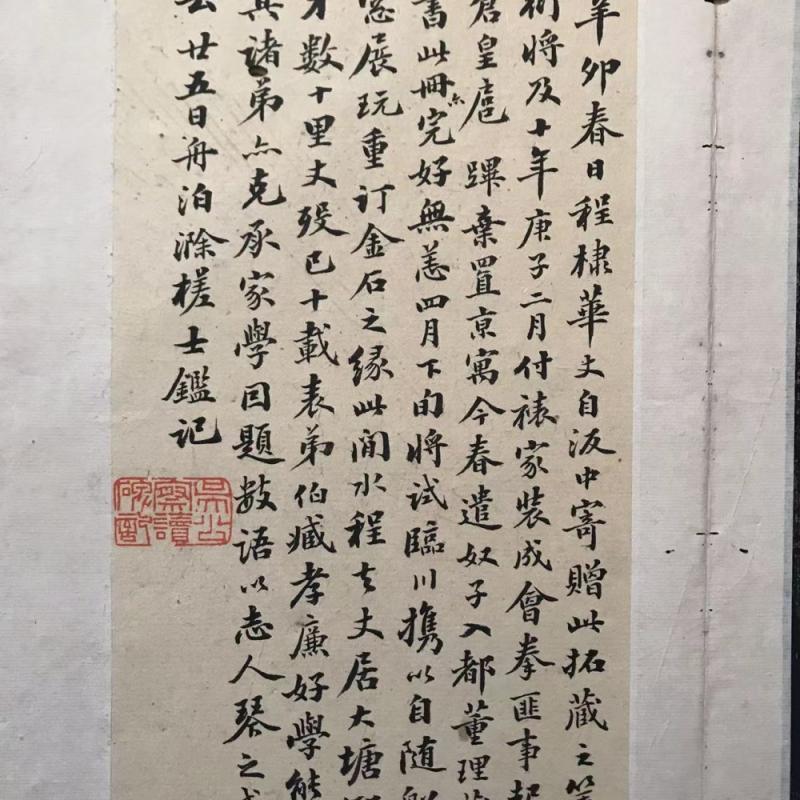 辛卯春日程棣華丈自汳中寄贈此拓藏之篋
衍將及十年庚子二月付裱家裝成會拳匪事起
倉皇扈蹕棄置京寓今春遣奴子入都董理
書此冊亦完好無恙四月下旬將試臨川攜以自隨
窓展玩重訂金石之緣此間水程去丈居大塘
才數十里丈歿已十載表弟伯臧孝廉好學能
其諸弟亦克承家學因題數語以志人琴之感
云廿五日舟泊滁槎士鑑記
吳士鑑讀碑記